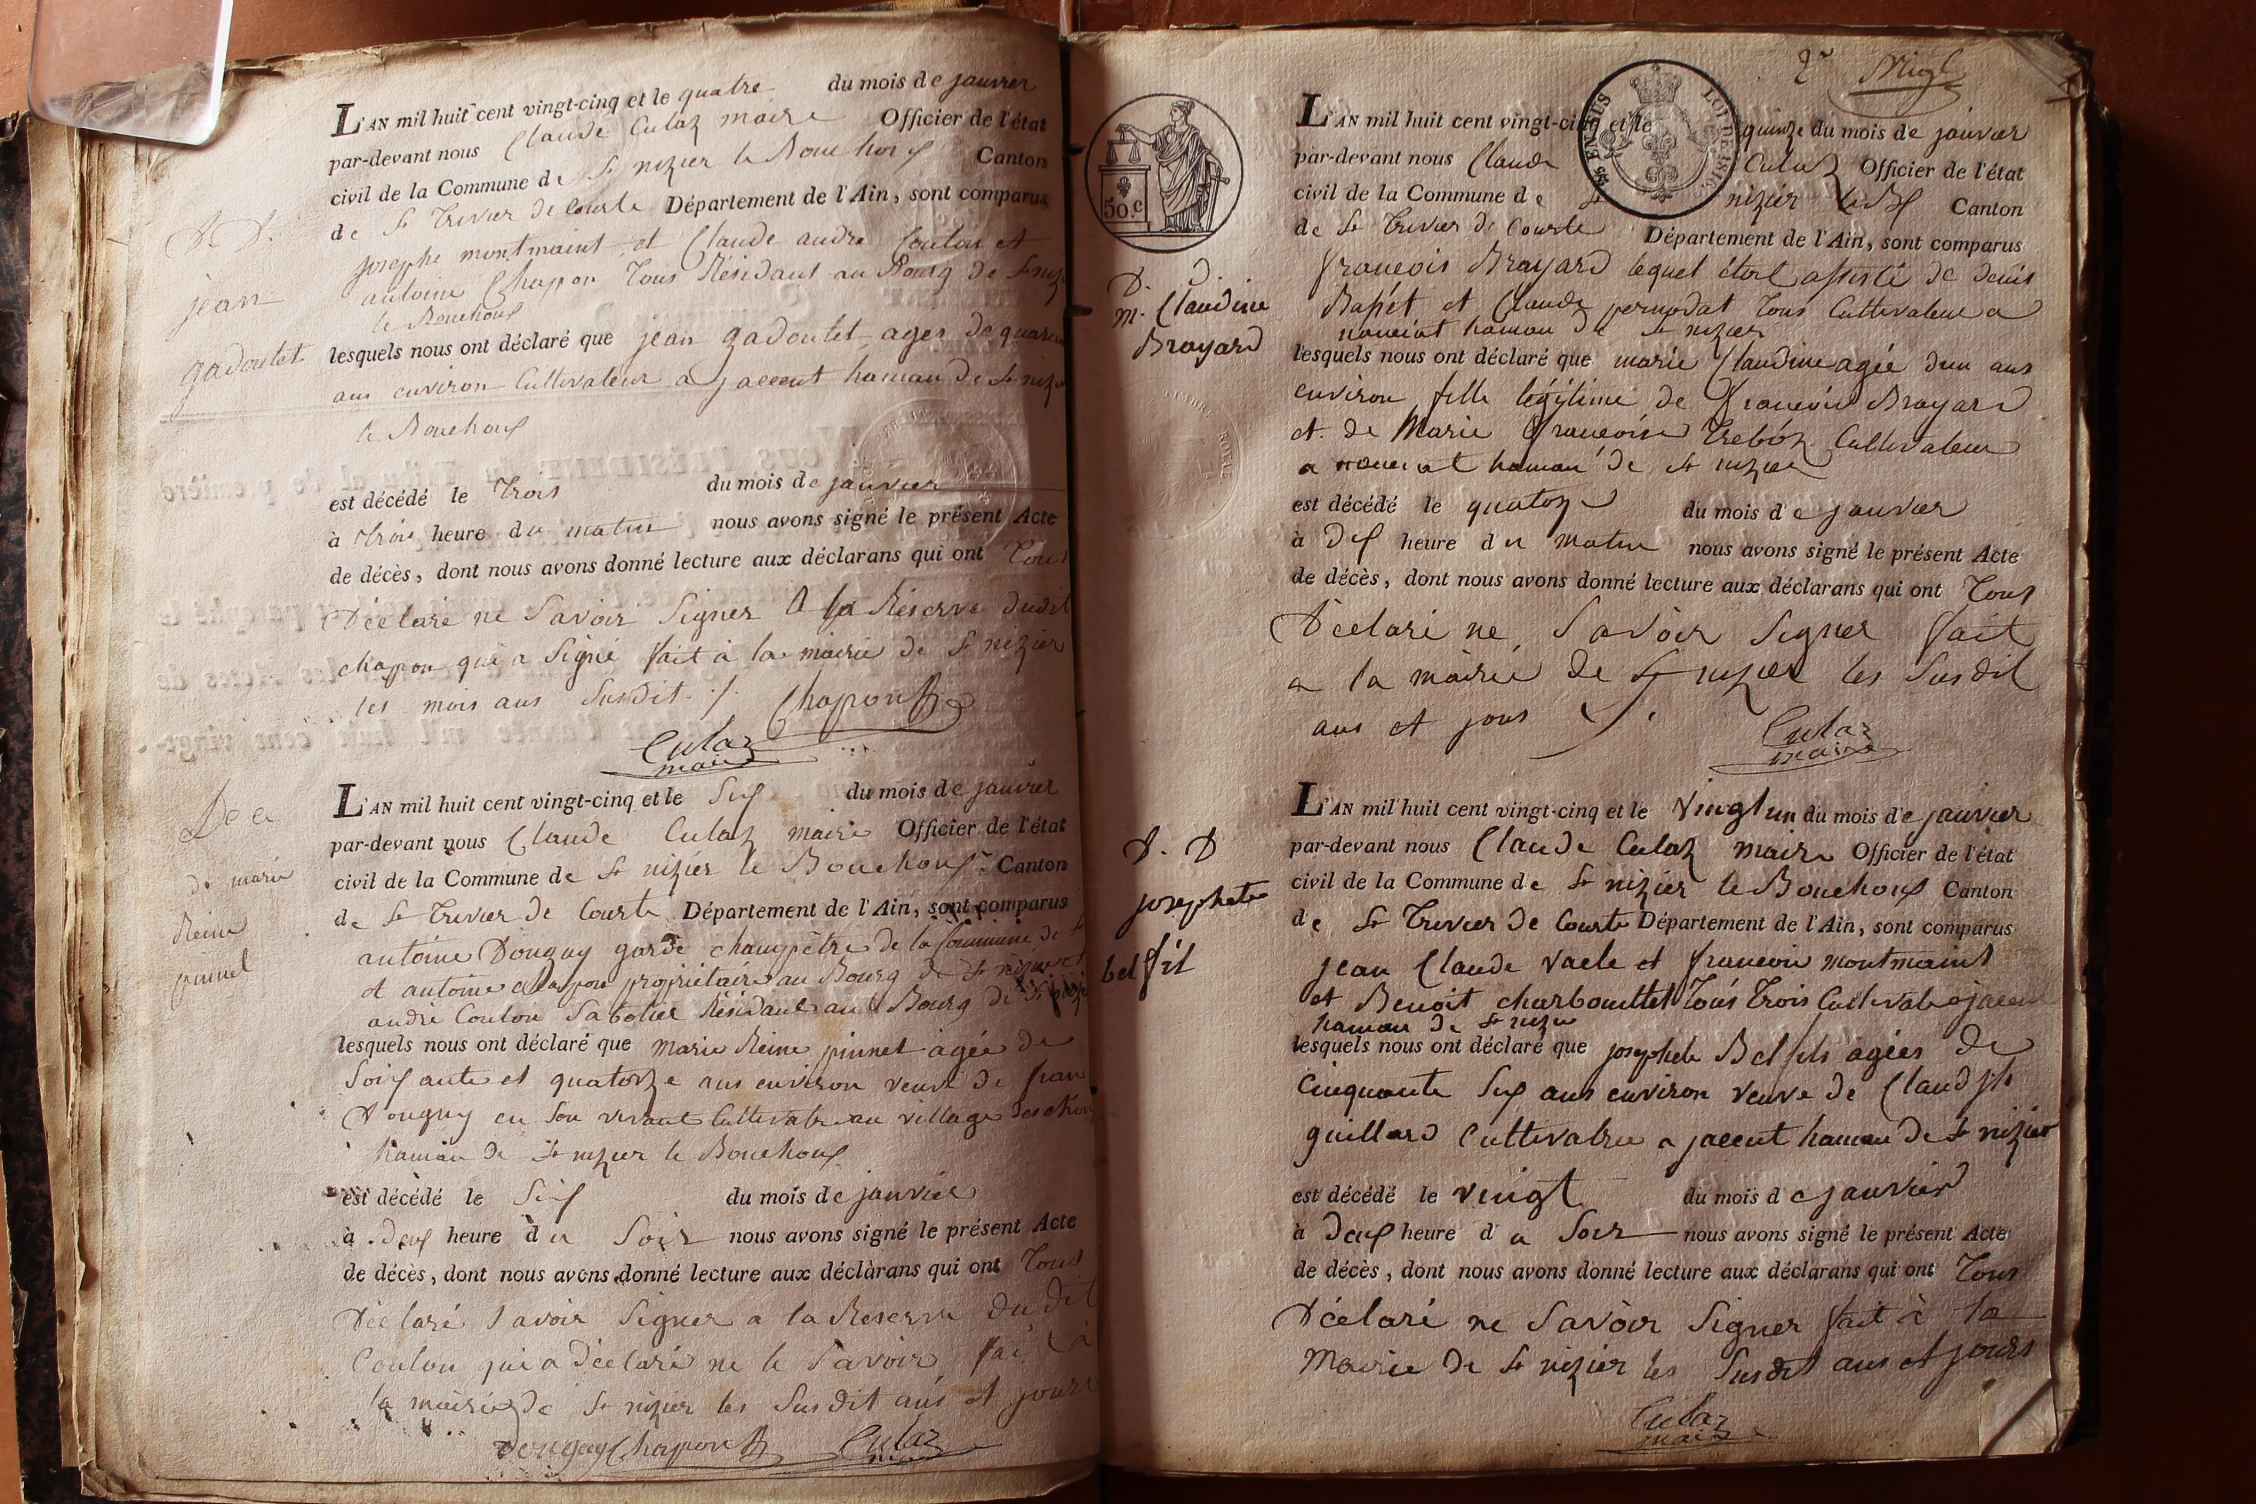 L'AN mil huit cent vingt-cinq et le quatre du mois de janvier
par-devant nous Claude Culaz maire Officier de l'état
civil de la Commune de St nizier le Bouchoux Canton
de St Trivier de Courte Département de l'Ain, sont comparus
D. D.
josephe montmaint et Claude andre Coulon et
antoine Chapon Tous Résidant au Bourg de St niz
jean
le Bouchoux
gadoulet
lesquels nous ont déclaré que jean gadoulet ages de quaran
ans environ Cultivateur a jaccent hamau de St nizi
le Bouchoux
est décédé le Trois du mois de janvier
à trois heure du matin nous avons signé le présent Acte
de décès, dont nous avons donné lecture aux déclarans qui ont Tous
Déclaré ne Savoir Signer A la Réserve dudit
chapon qui a Signé fait à la mairie de St nizier
les mois ans Susdit ./. Chapon
Culaz
maire
L'AN mil huit cent vingt-cinq et le Six du mois de janvier
par-devant nous Claude Culaz maire Officier de l'état
civil de la Commune de St nizier le Bouchoux Canton
de St Trivier de Courte Département de l'Ain, sont comparus
de marie
Reine
pinnet
antoine Donguy garde champètre de la Commune de St
et antoine Chapon propriétaire au Bourg de St nizier et
andré Coulon Sabotier Résidant au Bourg de St nizi
lesquels nous ont déclaré que marie Reine pinnet agée de
Soixante et quatorze ans environ veuve de fran
Donguy en Son vivant Cultivatr au village
hamau de St nizier le Bouchoux
est décédé le Six du mois de janvier
à deux heure du Soir nous avons signé le présent Acte
de décès, dont nous avons donné lecture aux déclàrans qui ont Tous
Déclaré Savoir Signer a la Reserve du dit
Coulon qui a Déclaré ne le Savoir fait à
la mairie de St nizier les Susdit ans et jours
Donguy Chapon Culaz
maire
2e
25 EN SUS
LOI DE 1816.
50.c
L'AN mil huit cent vingt-cinq et le quinze du mois de janvier
par-devant nous Claude Culaz Officier de l'état
civil de la Commune de St nizier le Bx Canton
de St Trivier de Courte Département de l'Ain, sont comparus
D. D.
m. Claudine
Brayard
francois Brayard lequel étoit assisté de denis
Bapét et Claude pernodat Tous Cultivateur a
hamau de St nizier
lesquels nous ont déclaré que marie Claudine agée dun ans
environ fille légitime de francois Brayard
et de Marie francoise Treboz Cultivateur
a hamau de St nizier
est décédé le quatorze du mois de janvier
à dix heure du matin nous avons signé le présent Acte
de décès, dont nous avons donné lecture aux déclarans qui ont Tous
Déclaré ne Savoir Signer fait
a la mairie de St nizier les Susdit
ans et jours ./.
Culaz
maire
L'AN mil huit cent vingt-cinq et le vingt un du mois de janvier
par-devant nous Claude Culaz maire Officier de l'état
civil de la Commune de St nizier le Bouchoux Canton
de St Trivier de Courte Département de l'Ain, sont comparus
D. D
josephete
bel fil
jean Claude vacle et francois montmaint
et Benoit charbouillet Tous Trois Cultivatr a jaccent
hamau de St nizier
lesquels nous ont déclaré que josephete Bel fils agées de
Cinquante Six ans environ veuve de Claud jh
guillard Cultivatru a jaccent hamau de St nizier
est décédé le vingt du mois de janvier
à deux heure du Soir nous avons signé le présent Acte
de décès, dont nous avons donné lecture aux déclarans qui ont Tous
Déclaré ne Savoir Signer fait à la
Mairie de St nizier les Susdit ans et jours
Culaz
maire